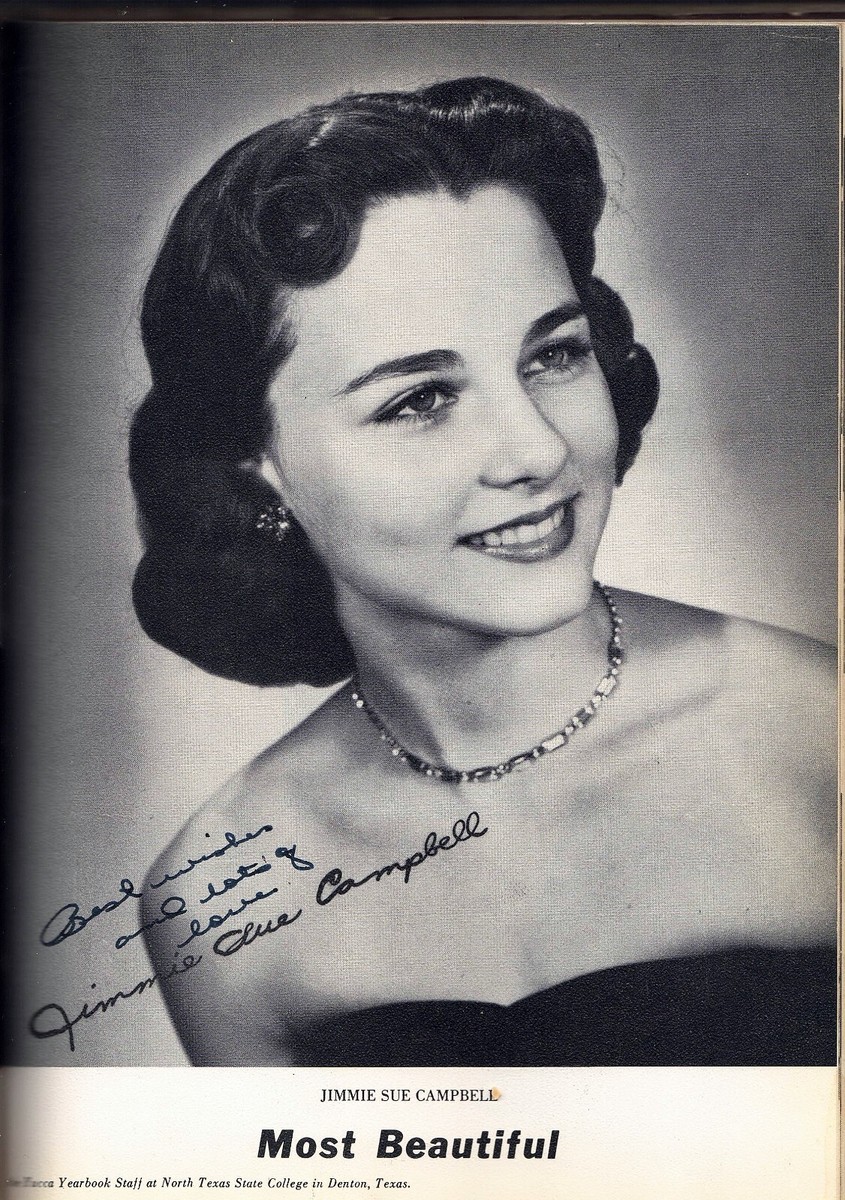 Best wishes
and lots of
love
Jimmie Sue Campbell
JIMMIE SUE CAMPBELL
Most Beautiful
Yucca Yearbook Staff at North Texas State College in Denton, Texas.